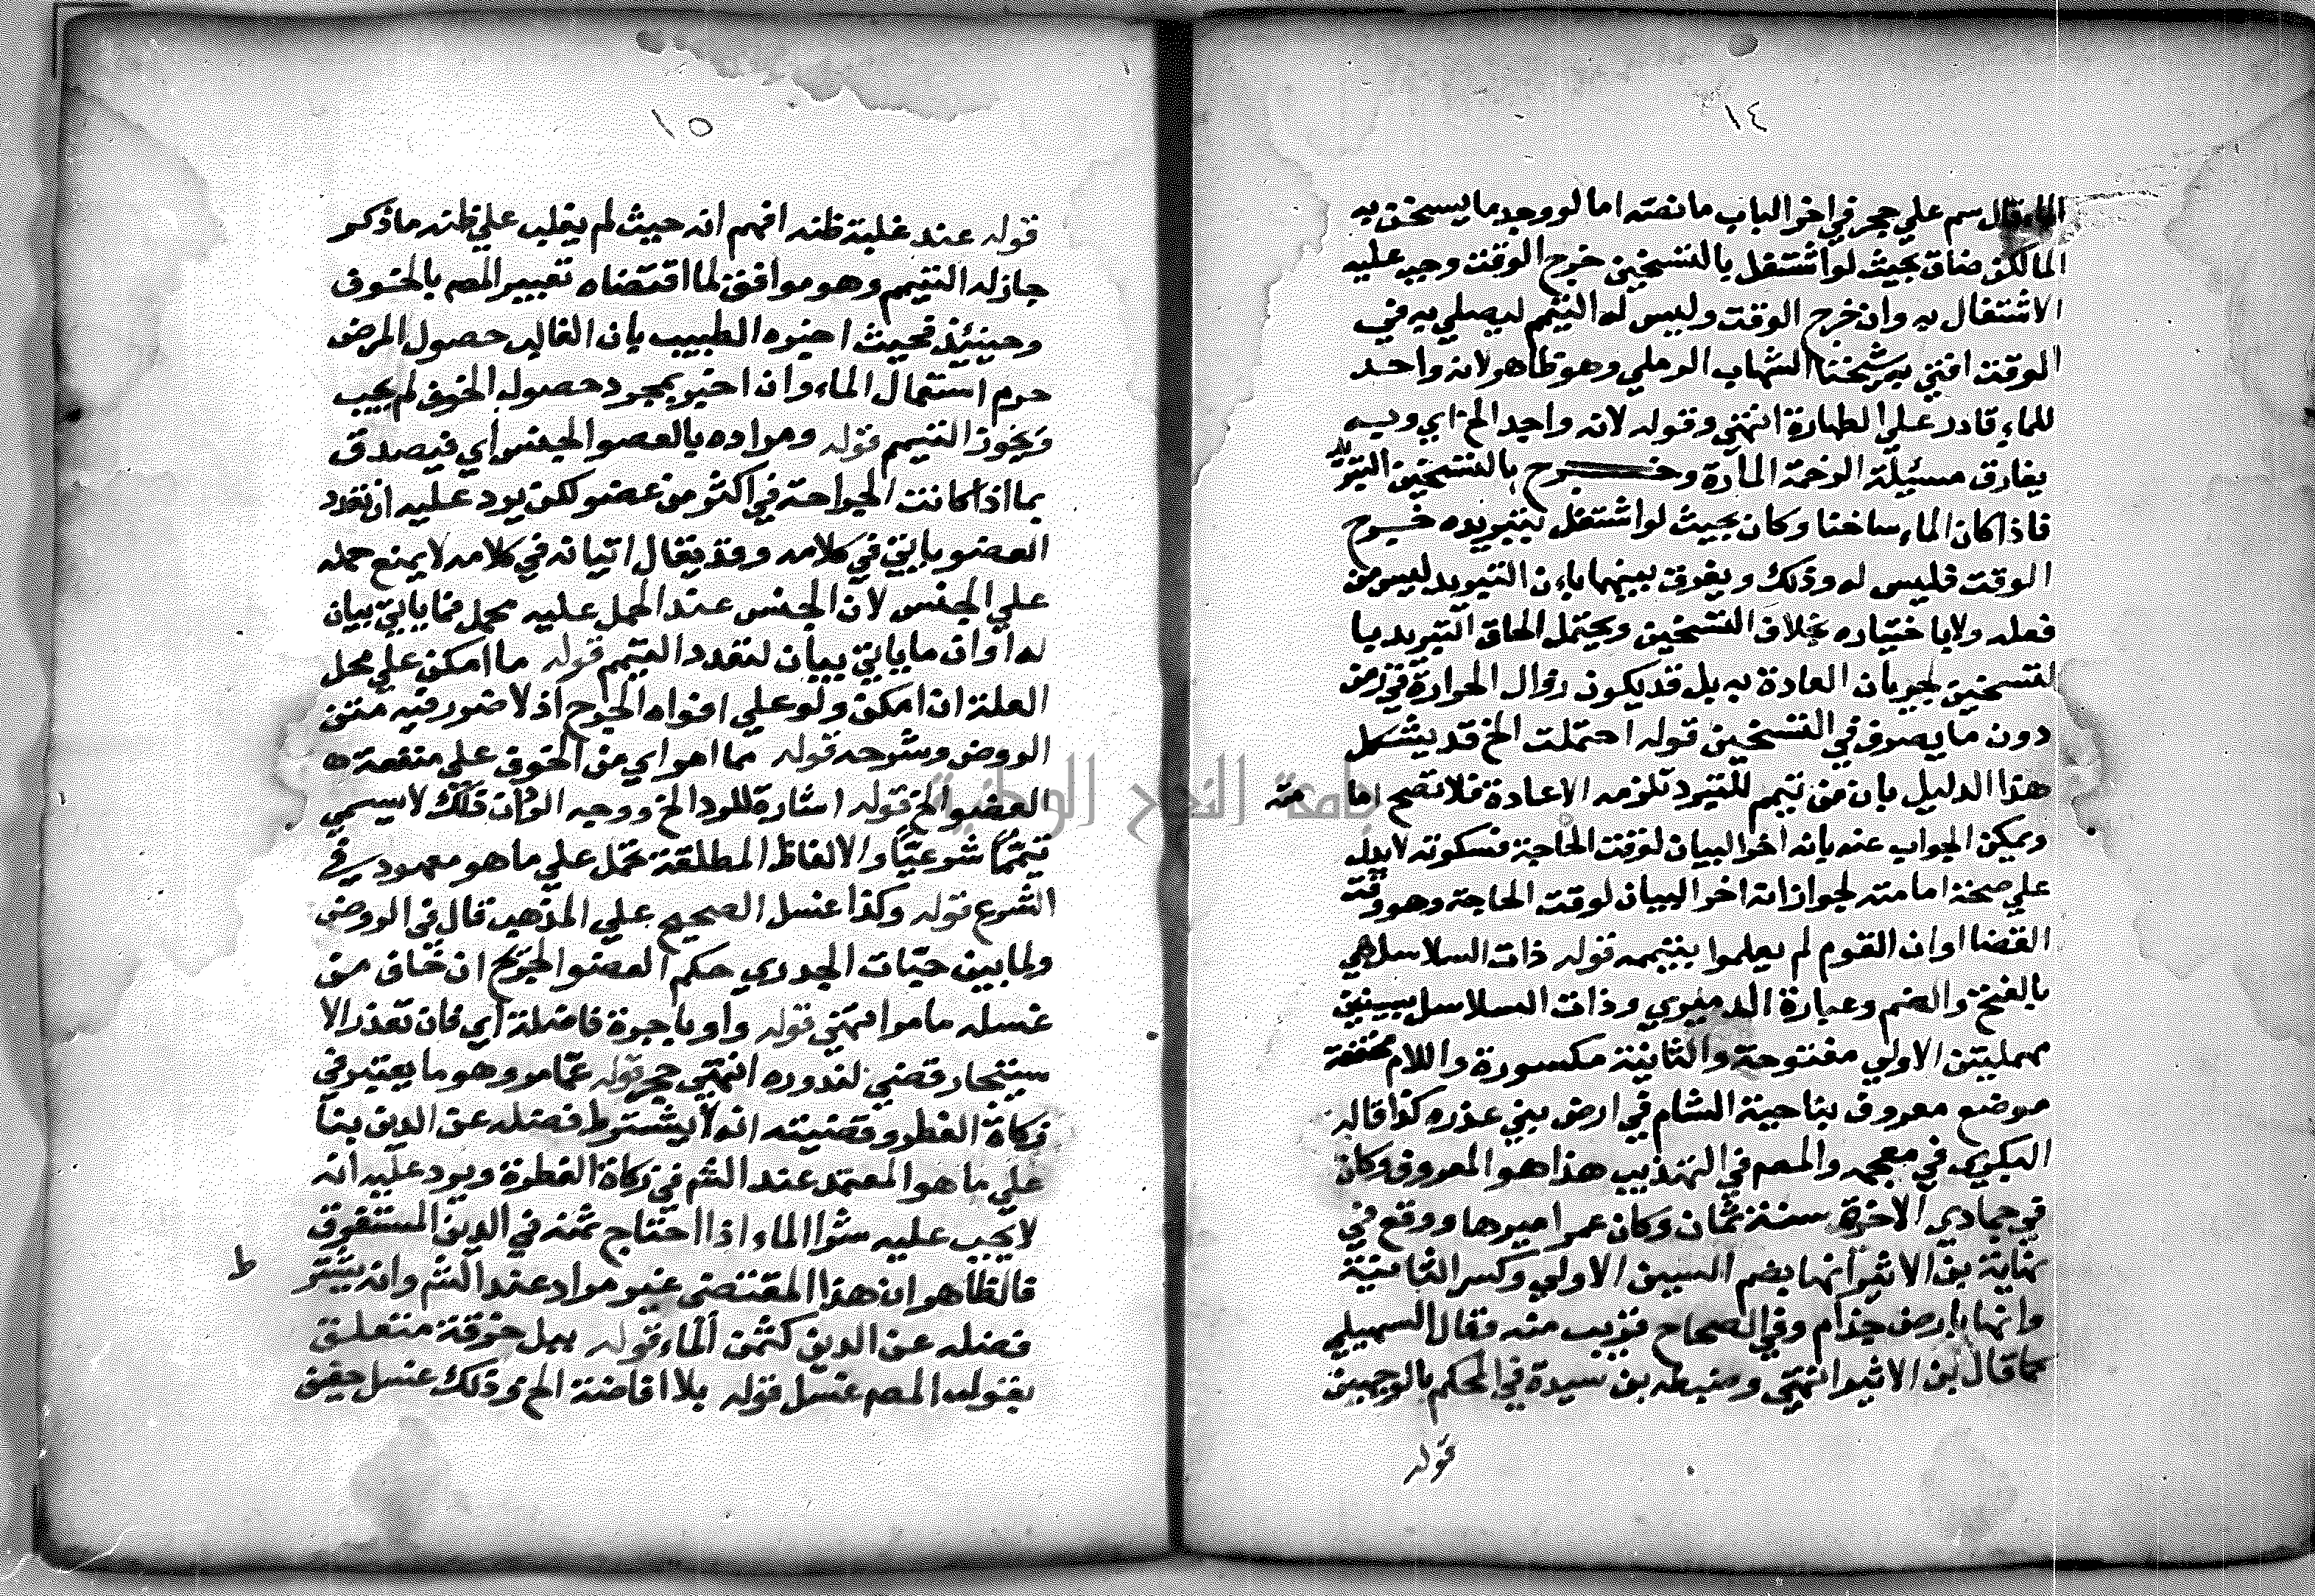 ١٤
الماء قال سم علي حجر في اخر الباب ما نصه اما لو وجد ما يسخن به
الما لكن ضاق بحيث لو اشتغل بالتسخين خرج الوقت وجب عليه
الاشتغال به وان خرج الوقت وليس له التيمم ليصلي به في
الوقت افتي به شيخنا الشهاب الرملي وهو ظاهر لانه واحد
للماء قادر علي الطهارة انتهي وقوله لانه واجد الخ اي وبه
يفارق مسئلة الزحمة المارة وخرج بالتسخين التبريد
فاذا كان الماء ساخنا وكان بحيث لو اشتغل بتبريده خرج
الوقت فليس له وذلك ويفرق بينهما بان التبريد ليس من
فعله ولا باختياره بخلاف التسخين ويحتمل الحاق التبريد با
لتسخين لجريان العادة به بل قد يكون زوال الحرارة في زمن
دون ما يصرف في التسخين قوله احتملت الخ قد يشكل
هذا الدليل بان من تيمم للتبرد تلزمه الاعادة فلا تصح اما مته
ويمكن الجواب عنه بانه اخر البيان لوقت الحاجة فسكوته لا يدل
علي صحة امامته لجواز انه اخر البيان لوقت الحاجة وهو وقت
القضا او ان القوم لم يعلموا بتيممه قوله ذات السلاسل هي
بالفتح والضم وعبارة الدميري وذات السلاسل بسينين
مهملتين الاولي مفتوحة والثانية مكسورة واللام مخففة
موضع معروف بناحية الشام في ارض بني عذره كذا قاله
البكري في معجمه والمص في التهذيب هذا هو المعروف وكان
في جمادي الاخرة سنة ثمان وكان عمر اميرها ووقع في
نهاية بن الاثير انها بضم السين الاولي وكسر الثانية
وانها بارض جذام وفي الصحاح قريب منه وقال السهيلي
كما قال بن الاثير انتهي وضبطه بن سيدة في المحكم بالوجهين
قوله
١٥
قوله عند غلبة ظنه افهم انه حيث لم يغلب علي ظنه ما ذكر
جاز له التيمم وهو موافق لما اقتضاه تعبير المص بالخوف
وحينئذ فحيث اخبره الطبيب بان الغالب حصول المرض
حرم استعمال الماء وان اخبر بمجرد حصول الخوف لم يجب
ويجوز التيمم قوله ومراده بالعضو الجنس اي فيصدق
بما اذا كانت الجراحة في اكثر من عضو لكن يرد عليه ان تعدد
العضو ياتي في كلامه وقد يقال اتيانه في كلامه لا يمنع حمله
علي الجنس لان الجنس عند الحمل عليه مجمل فما ياتي بيان
له او ان ما ياتي بيان لتعدد التيمم قوله ما امكن علي محل
العلة ان امكن ولو علي افواه الجرح اذ لا ضرر فيه متن
الروض وشرحه قوله مما امر اي من الخوف علي منفعة ه
العضو الخ قوله اشارة للرد الخ ووجه الرد ان ذلك لا يسمي
تيمما شرعيا والالفاظ المطلقة تحمل علي ما هو معهود في
الشرع قوله وكذا غسل الصحيح علي المذهب قال في الروض
ولما بين حبات الجدري حكم العضو الجريح ان خاف من
غسله ما مر انتهي قوله ولو باجرة فاضلة اي فان تعذر الا
ستيجار قضي لندوره انتهي حجر قوله عما مر وهو ما يعتبر في
زكاة الفطر وقضيته انه لا يشترط فضله عن الدين بنا
علي ما هو المعتمد عند الش في زكاة الفطرة ويرد عليه انه
لا يجب عليه شرا الماء اذا احتاج ثمنه في الدين المستغرق
فالظاهر ان هذا المقتضي غير مراد عند الش وانه يشتر ط
فضله عن الدين كثمن الماء قوله ببل خرقة متعلق
بقوله المص غسل قوله بلا افاضة الخ وذلك غسل خفيف
جامعة النجاح الوطنية